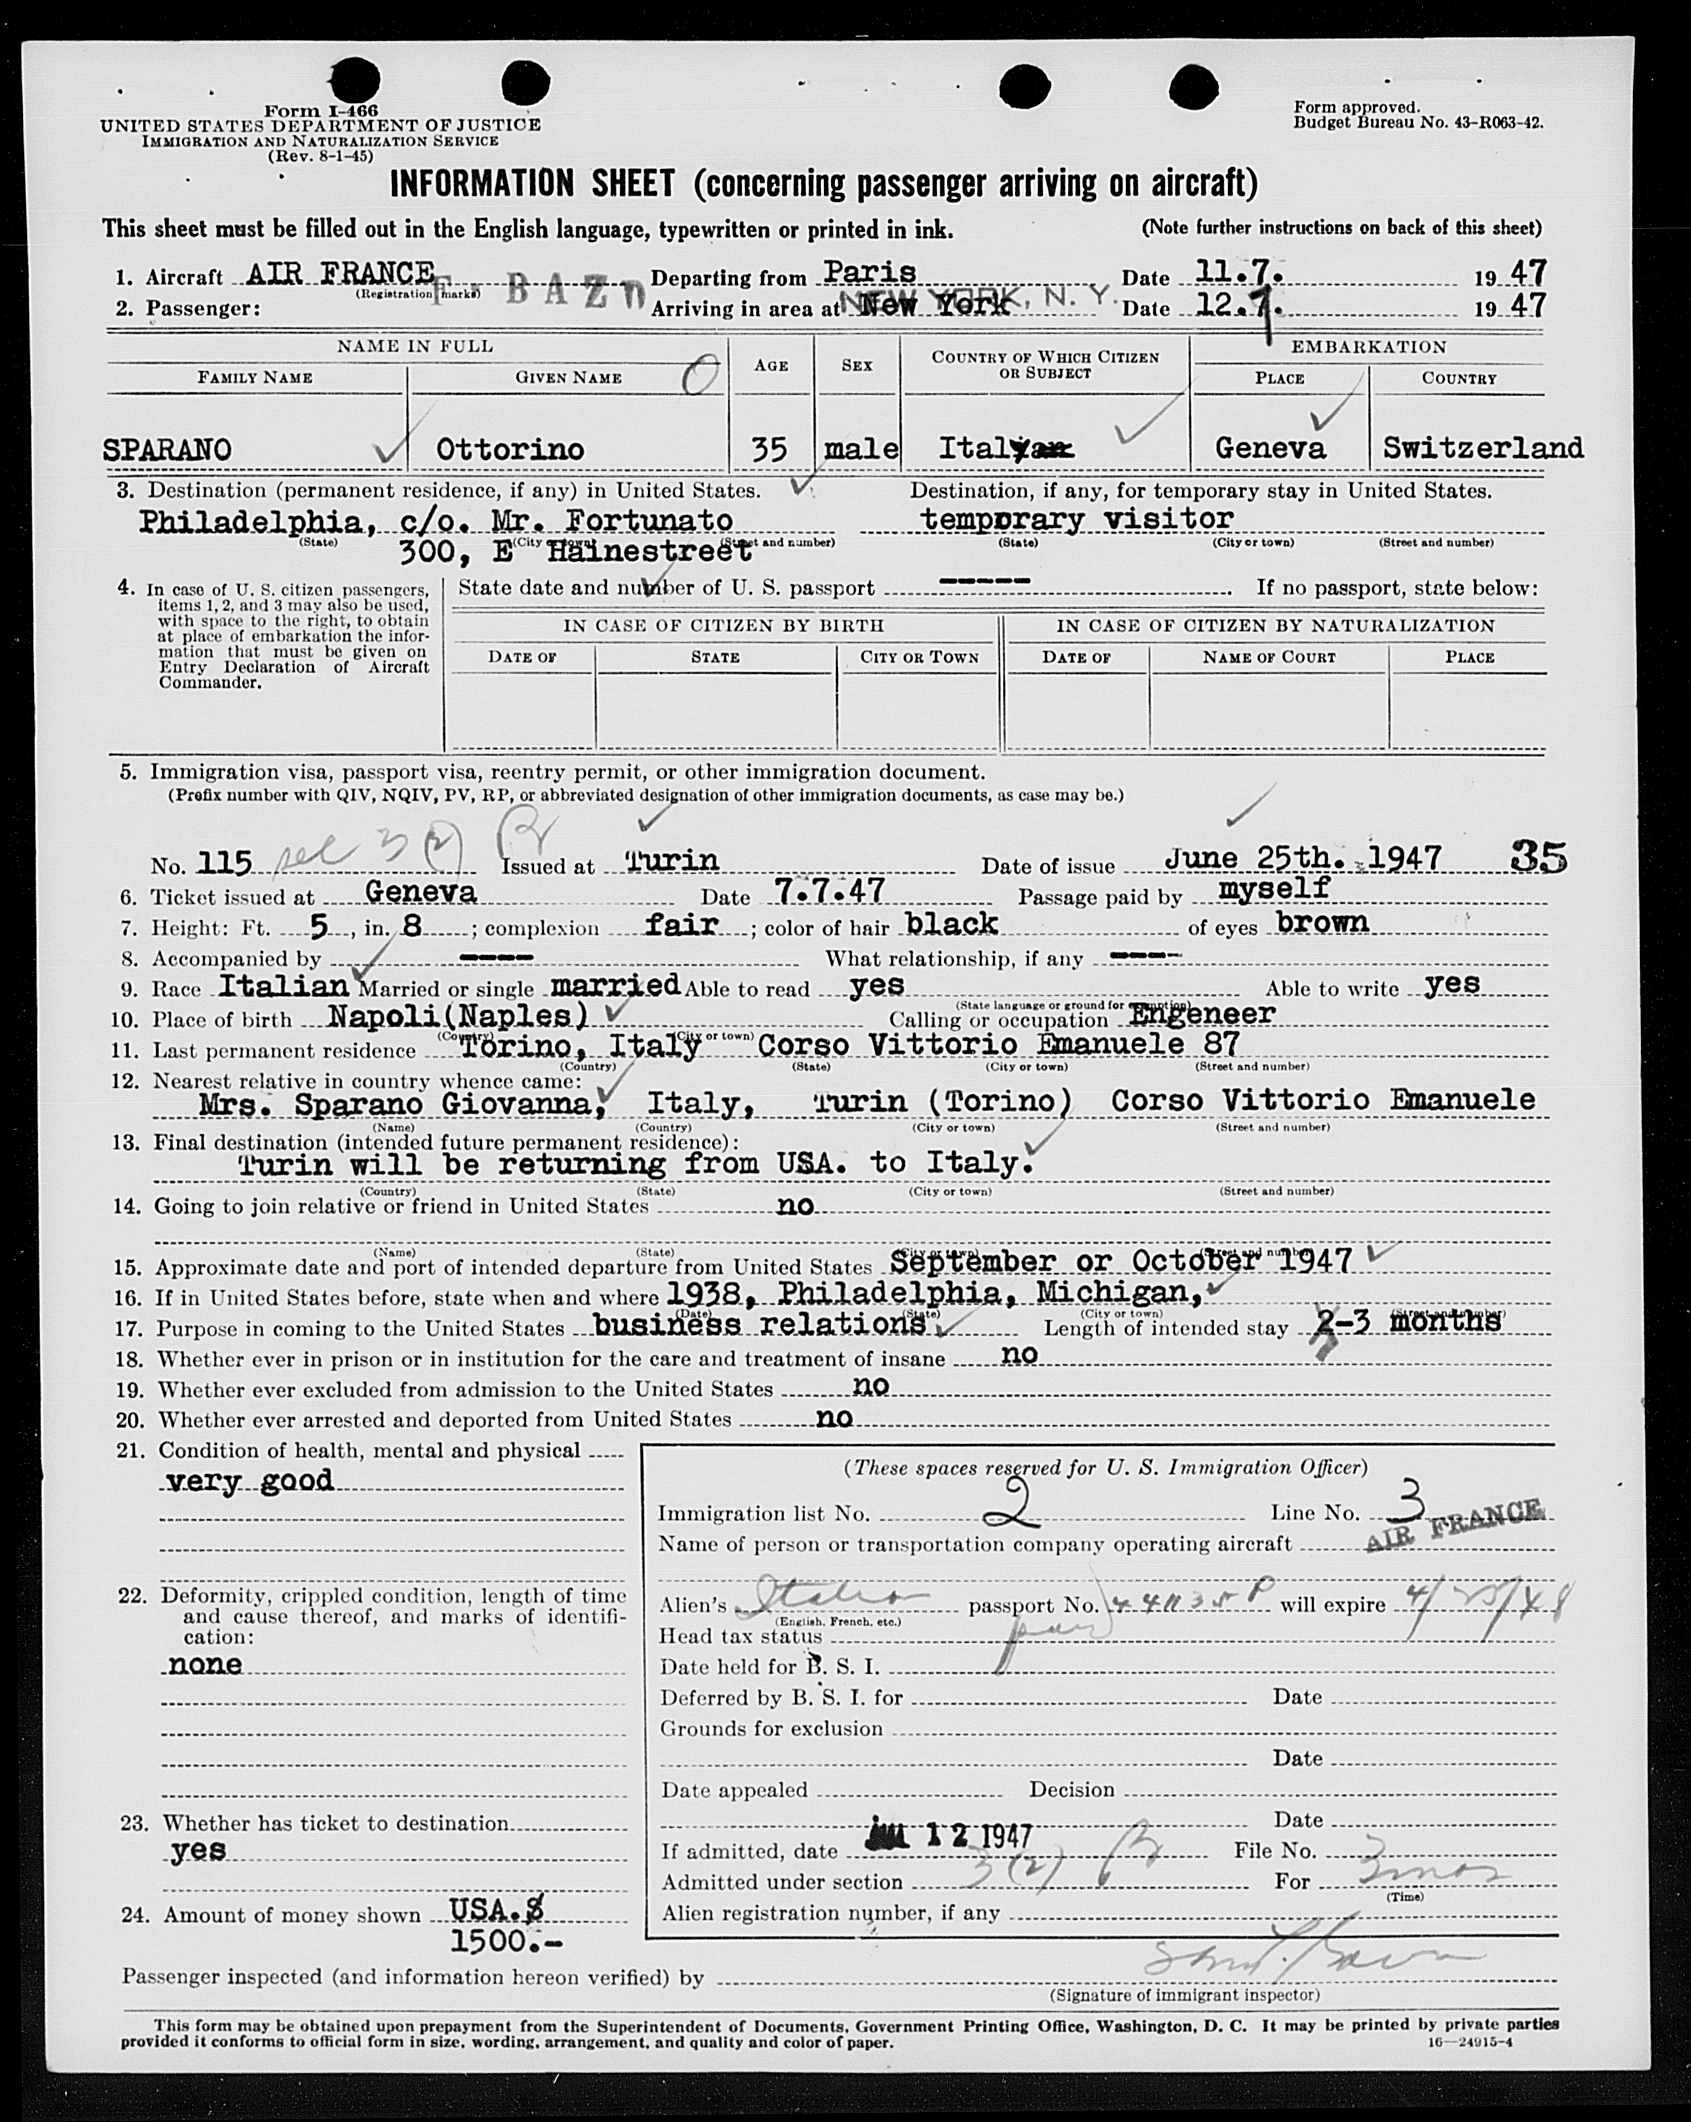 Form I-466
UNITED STATES DEPARTMENT OF JUSTICE
IMMIGRATION AND NATURALIZATION SERVICE
(Rev. 8-1-45)
Form approved.
Budget Bureau No. 43-R063-42.
INFORMATION SHEET (concerning passenger arriving on aircraft)
This sheet must be filled out in the English language, typewritten or printed in ink. (Note further instructions on back of this sheet)
1. Aircraft AIR FRANCE F-BAZD Departing from Paris Date 11.7. 1947
(Registration marks)
2. Passenger: Arriving in area at New York NEW YORK, N. Y. Date 12.7. 1947
NAME IN FULL AGE SEX COUNTRY OF WHICH CITIZEN OR SUBJECT EMBARKATION
FAMILY NAME GIVEN NAME PLACE COUNTRY
SPARANO Ottorino 35 male Italy Geneva Switzerland
3. Destination (permanent residence, if any) in United States. Destination, if any, for temporary stay in United States.
Philadelphia, c/o. Mr. Fortunato temporary visitor
(State) (City or town) (Street and number) (State) (City or town) (Street and number)
300, E Hainestreet
4. In case of U. S. citizen passengers, items 1, 2, and 3 may also be used, with space to the right, to obtain at place of embarkation the information that must be given on Entry Declaration of Aircraft Commander.
State date and number of U. S. passport ------ If no passport, state below:
IN CASE OF CITIZEN BY BIRTH IN CASE OF CITIZEN BY NATURALIZATION
DATE OF STATE CITY OR TOWN DATE OF NAME OF COURT PLACE
5. Immigration visa, passport visa, reentry permit, or other immigration document.
(Prefix number with QIV, NQIV, PV, RP, or abbreviated designation of other immigration documents, as case may be.)
No. 115 sec 3 (2) Issued at Turin Date of issue June 25th. 1947 35
6. Ticket issued at Geneva Date 7.7.47 Passage paid by myself
7. Height: Ft. 5, in. 8; complexion fair; color of hair black of eyes brown
8. Accompanied by ----- What relationship, if any -----
9. Race Italian Married or single married Able to read yes Able to write yes
(State language or ground for exemption)
10. Place of birth Napoli(Naples) Calling or occupation Engeneer
(Country) (City or town)
11. Last permanent residence Torino, Italy Corso Vittorio Emanuele 87
(Country) (State) (City or town) (Street and number)
12. Nearest relative in country whence came:
Mrs. Sparano Giovanna, Italy, Turin (Torino) Corso Vittorio Emanuele
(Name) (Country) (City or town) (Street and number)
13. Final destination (intended future permanent residence):
Turin will be returning from USA. to Italy.
(Country) (State) (City or town) (Street and number)
14. Going to join relative or friend in United States no
(Name) (State) (City or town) (Street and number)
15. Approximate date and port of intended departure from United States September or October 1947
16. If in United States before, state when and where 1938, Philadelphia, Michigan,
(Date) (State) (City or town) (Street and number)
17. Purpose in coming to the United States business relations Length of intended stay 2-3 months
18. Whether ever in prison or in institution for the care and treatment of insane no
19. Whether ever excluded from admission to the United States no
20. Whether ever arrested and deported from United States no
21. Condition of health, mental and physical
very good
22. Deformity, crippled condition, length of time
and cause thereof, and marks of identifi-
cation:
none
23. Whether has ticket to destination
yes
24. Amount of money shown USA.$
1500.-
(These spaces reserved for U. S. Immigration Officer)
Immigration list No. 2 Line No. 3
Name of person or transportation company operating aircraft AIR FRANCE
Alien's Italian passport No. will expire
(English, French, etc.)
Head tax status
Date held for B. S. I.
Deferred by B. S. I. for Date
Grounds for exclusion
Date
Date appealed Decision
Date
If admitted, date JUL 12 1947 File No.
Admitted under section 3(2) For 3 mos
(Time)
Alien registration number, if any
Passenger inspected (and information hereon verified) by
(Signature of immigrant inspector)
This form may be obtained upon prepayment from the Superintendent of Documents, Government Printing Office, Washington, D. C. It may be printed by private parties
provided it conforms to official form in size, wording, arrangement, and quality and color of paper. 16—24915-4